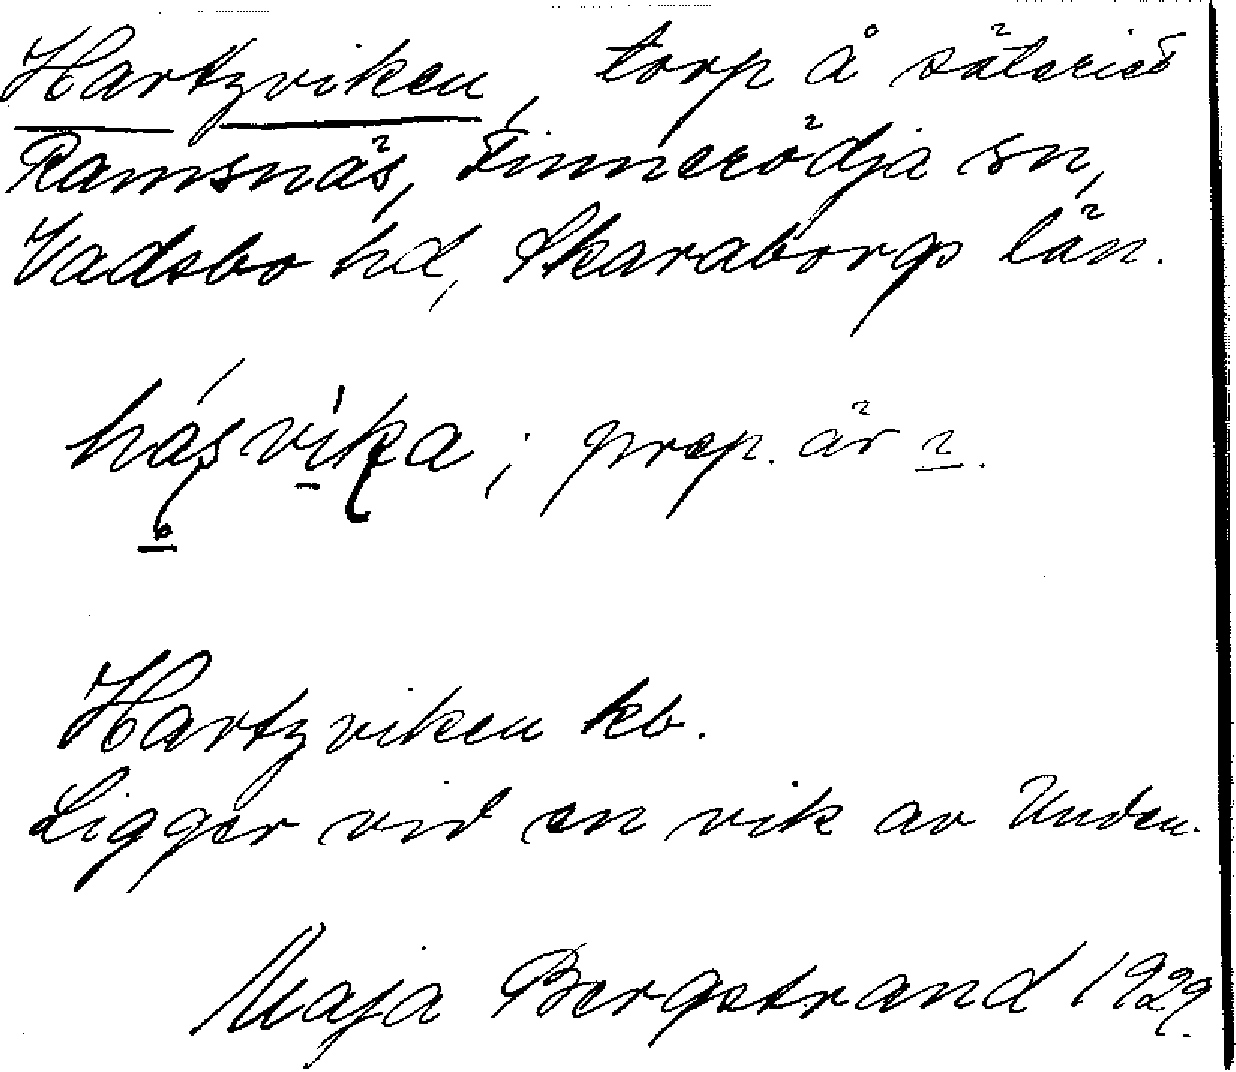 Hartzviken, torp å säteriet
Ramsnäs, Tinnerödja sn,
Vadsbo hd, Skaraborgs län.
hásvika; prep. är
Hartzviken kb.
Ligger vid en vik av Unden.
Maja Bergstrand 1929.